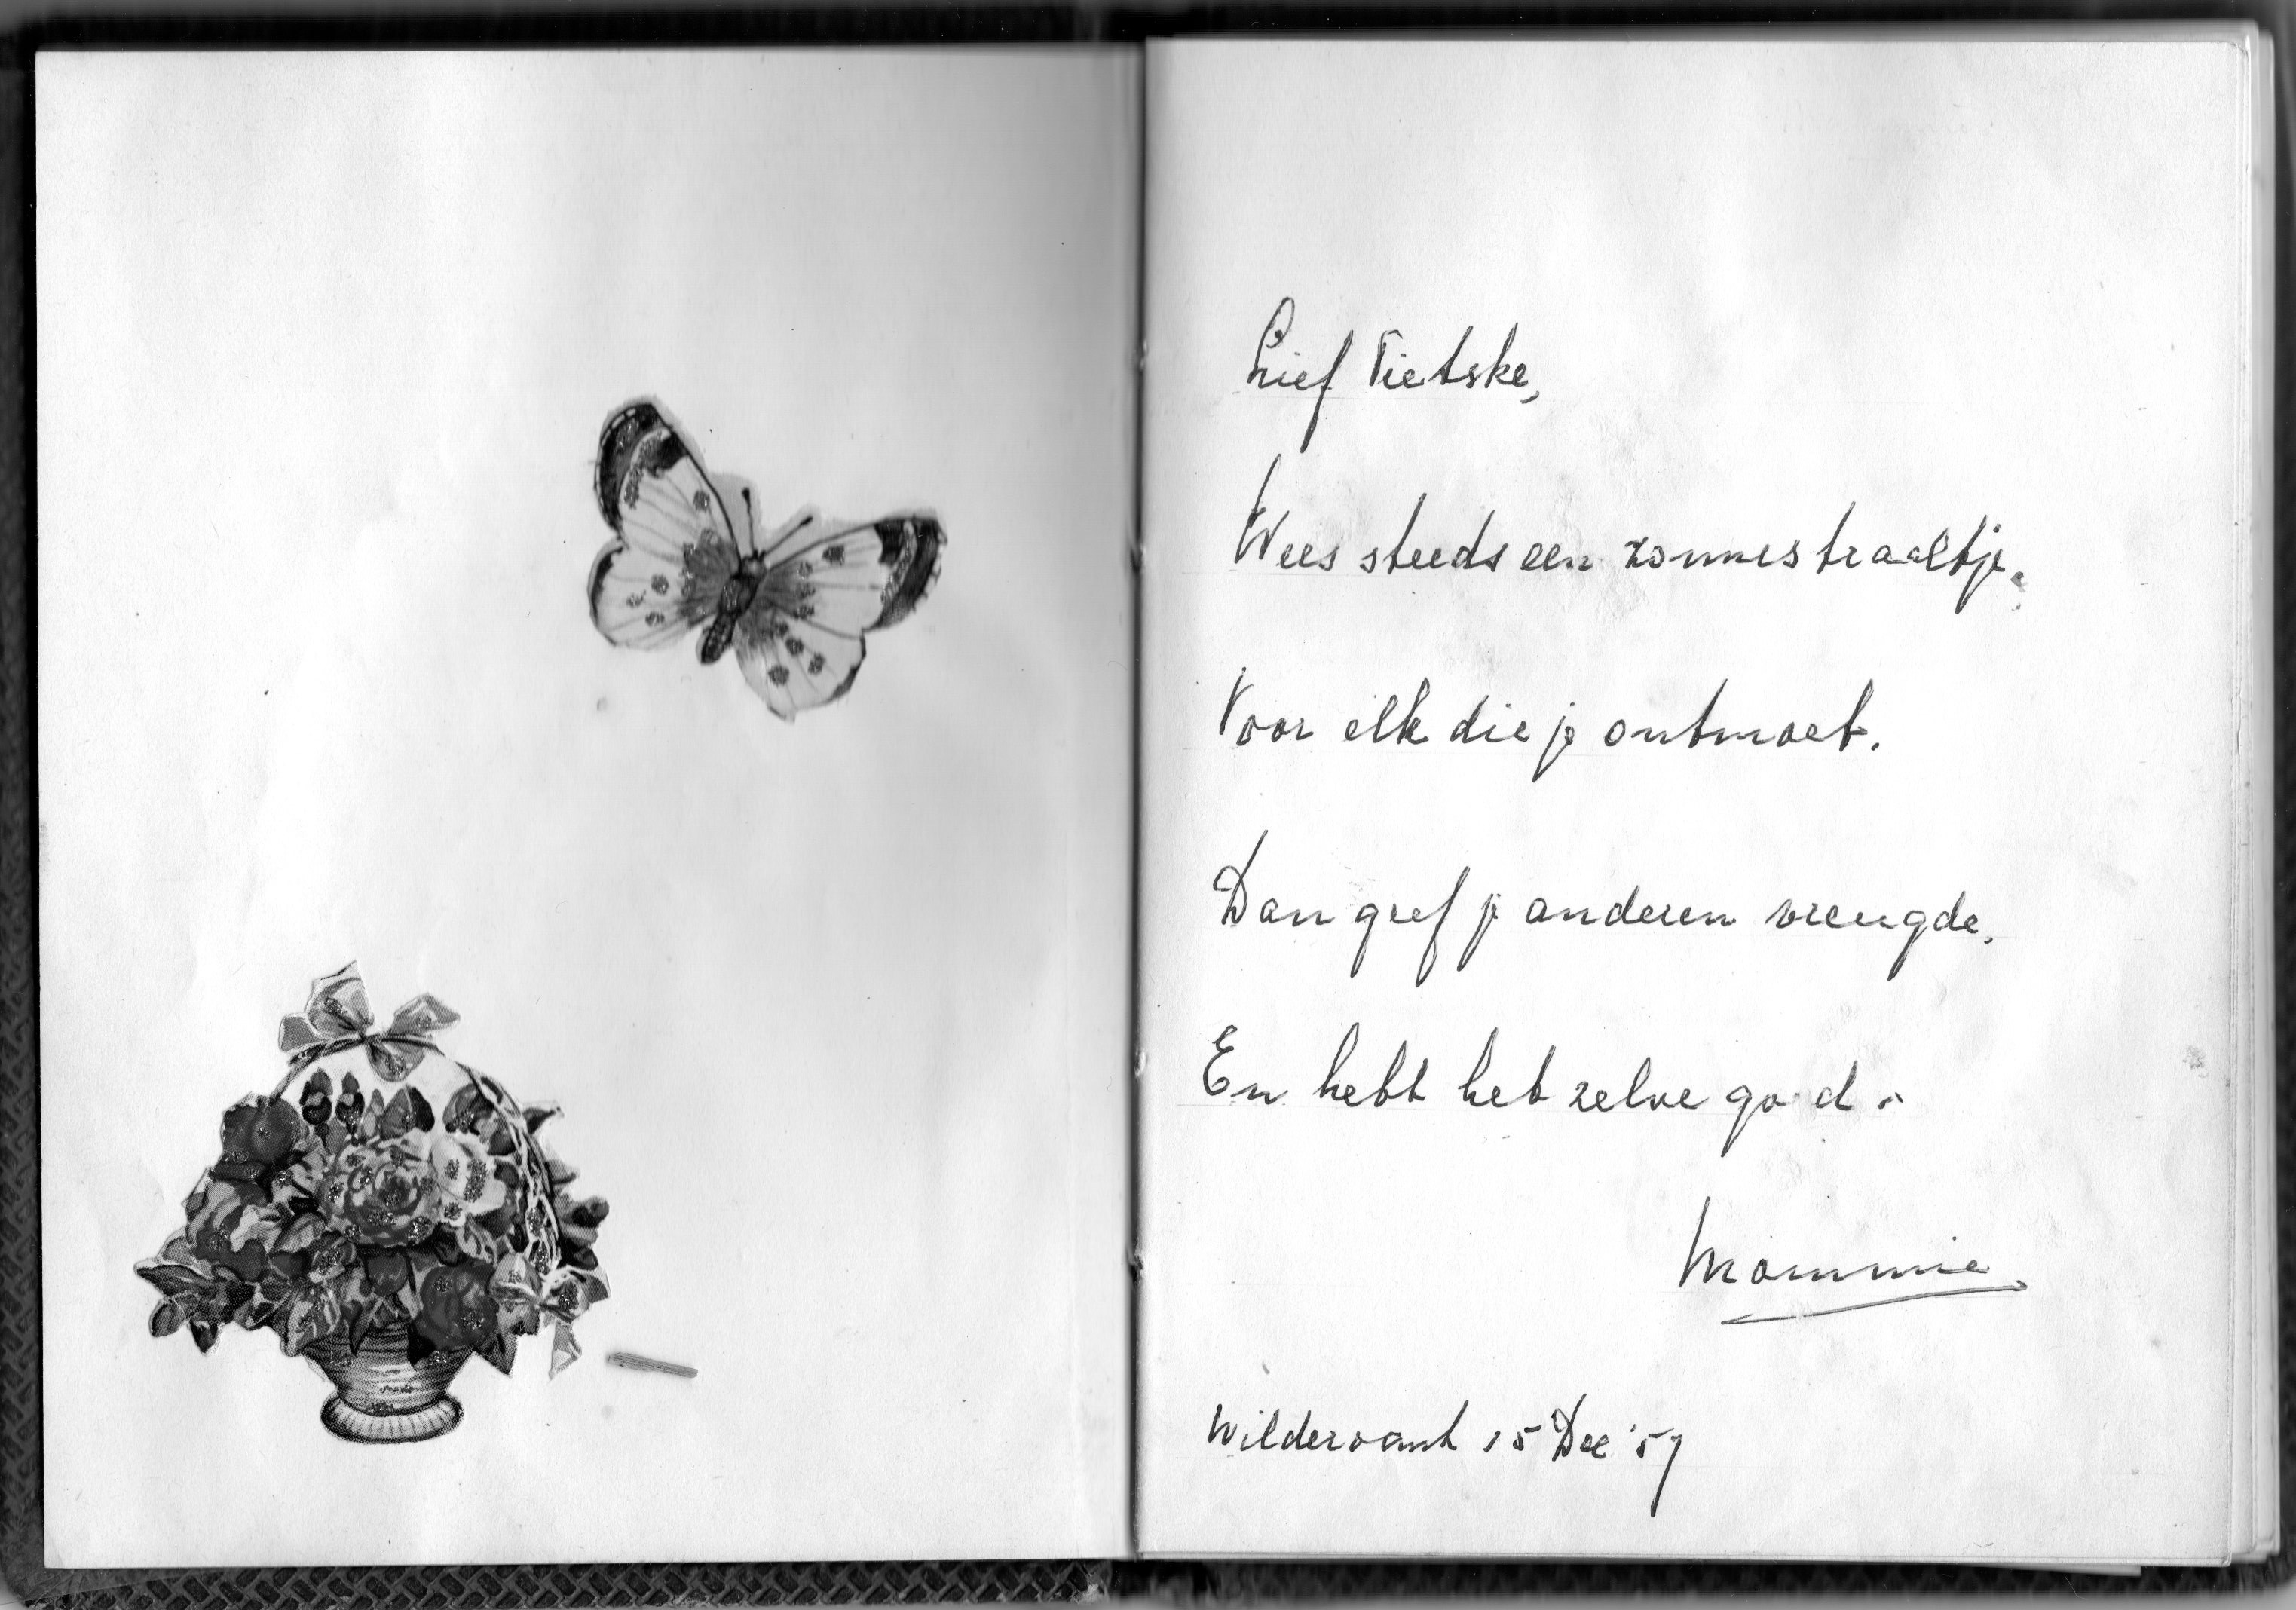 Lief Tietske,
Wees steeds een zonnestraaltje.
Voor elk die je ontmoet.
Dan geef je anderen vreugde,
En hebt het zelve goed.
Mommie.
Wildervank 15 Dec '57